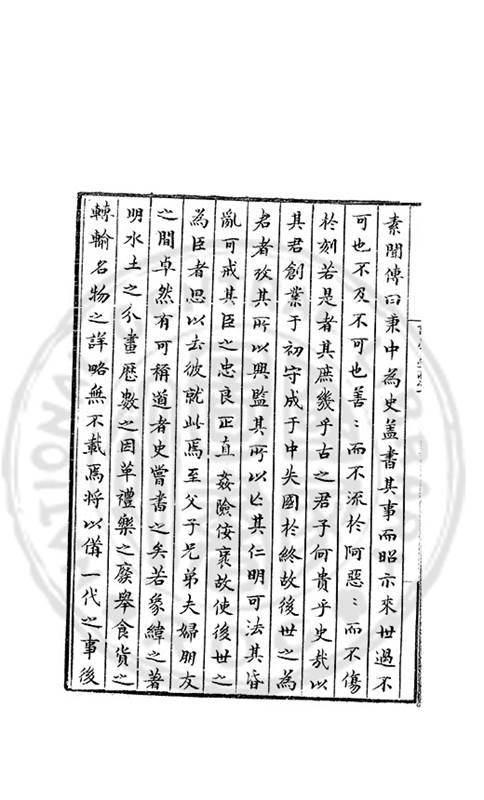 素聞傳曰秉中為史盖書其事而昭示來世過不
可也不及不可也善〻而不流於阿惡〻而不傷
於刻若是者其庶幾乎古之君子何貴乎史哉以
其君創業于初守成于中失國於終故後世之為
君者攷其所以興監其所以亡其仁明可法其昏
亂可戒其臣之忠良正直姦險佞衺故使後世之
為臣者思以去彼就此焉至父子兄弟夫婦朋友
之間卓然有可稱道者史嘗書之矣若象緯之著
明水土之分畫歷數之因革禮樂之廢舉食貨之
轉輸名物之詳略無不載焉將以備一代之事後